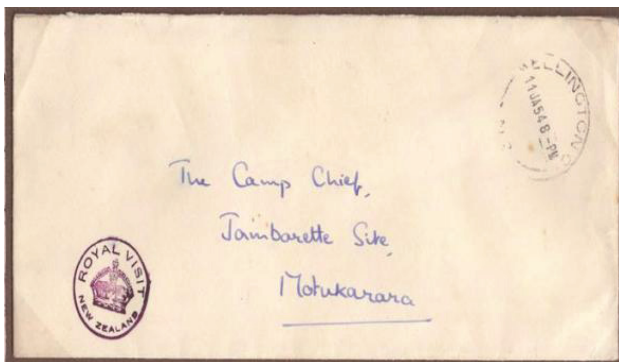 WELLINGTON C
11 JA 54 8 - PM
N.Z.
The Camp Chief,
Jambarette Site,
Motukarara
ROYAL VISIT
NEW ZEALAND